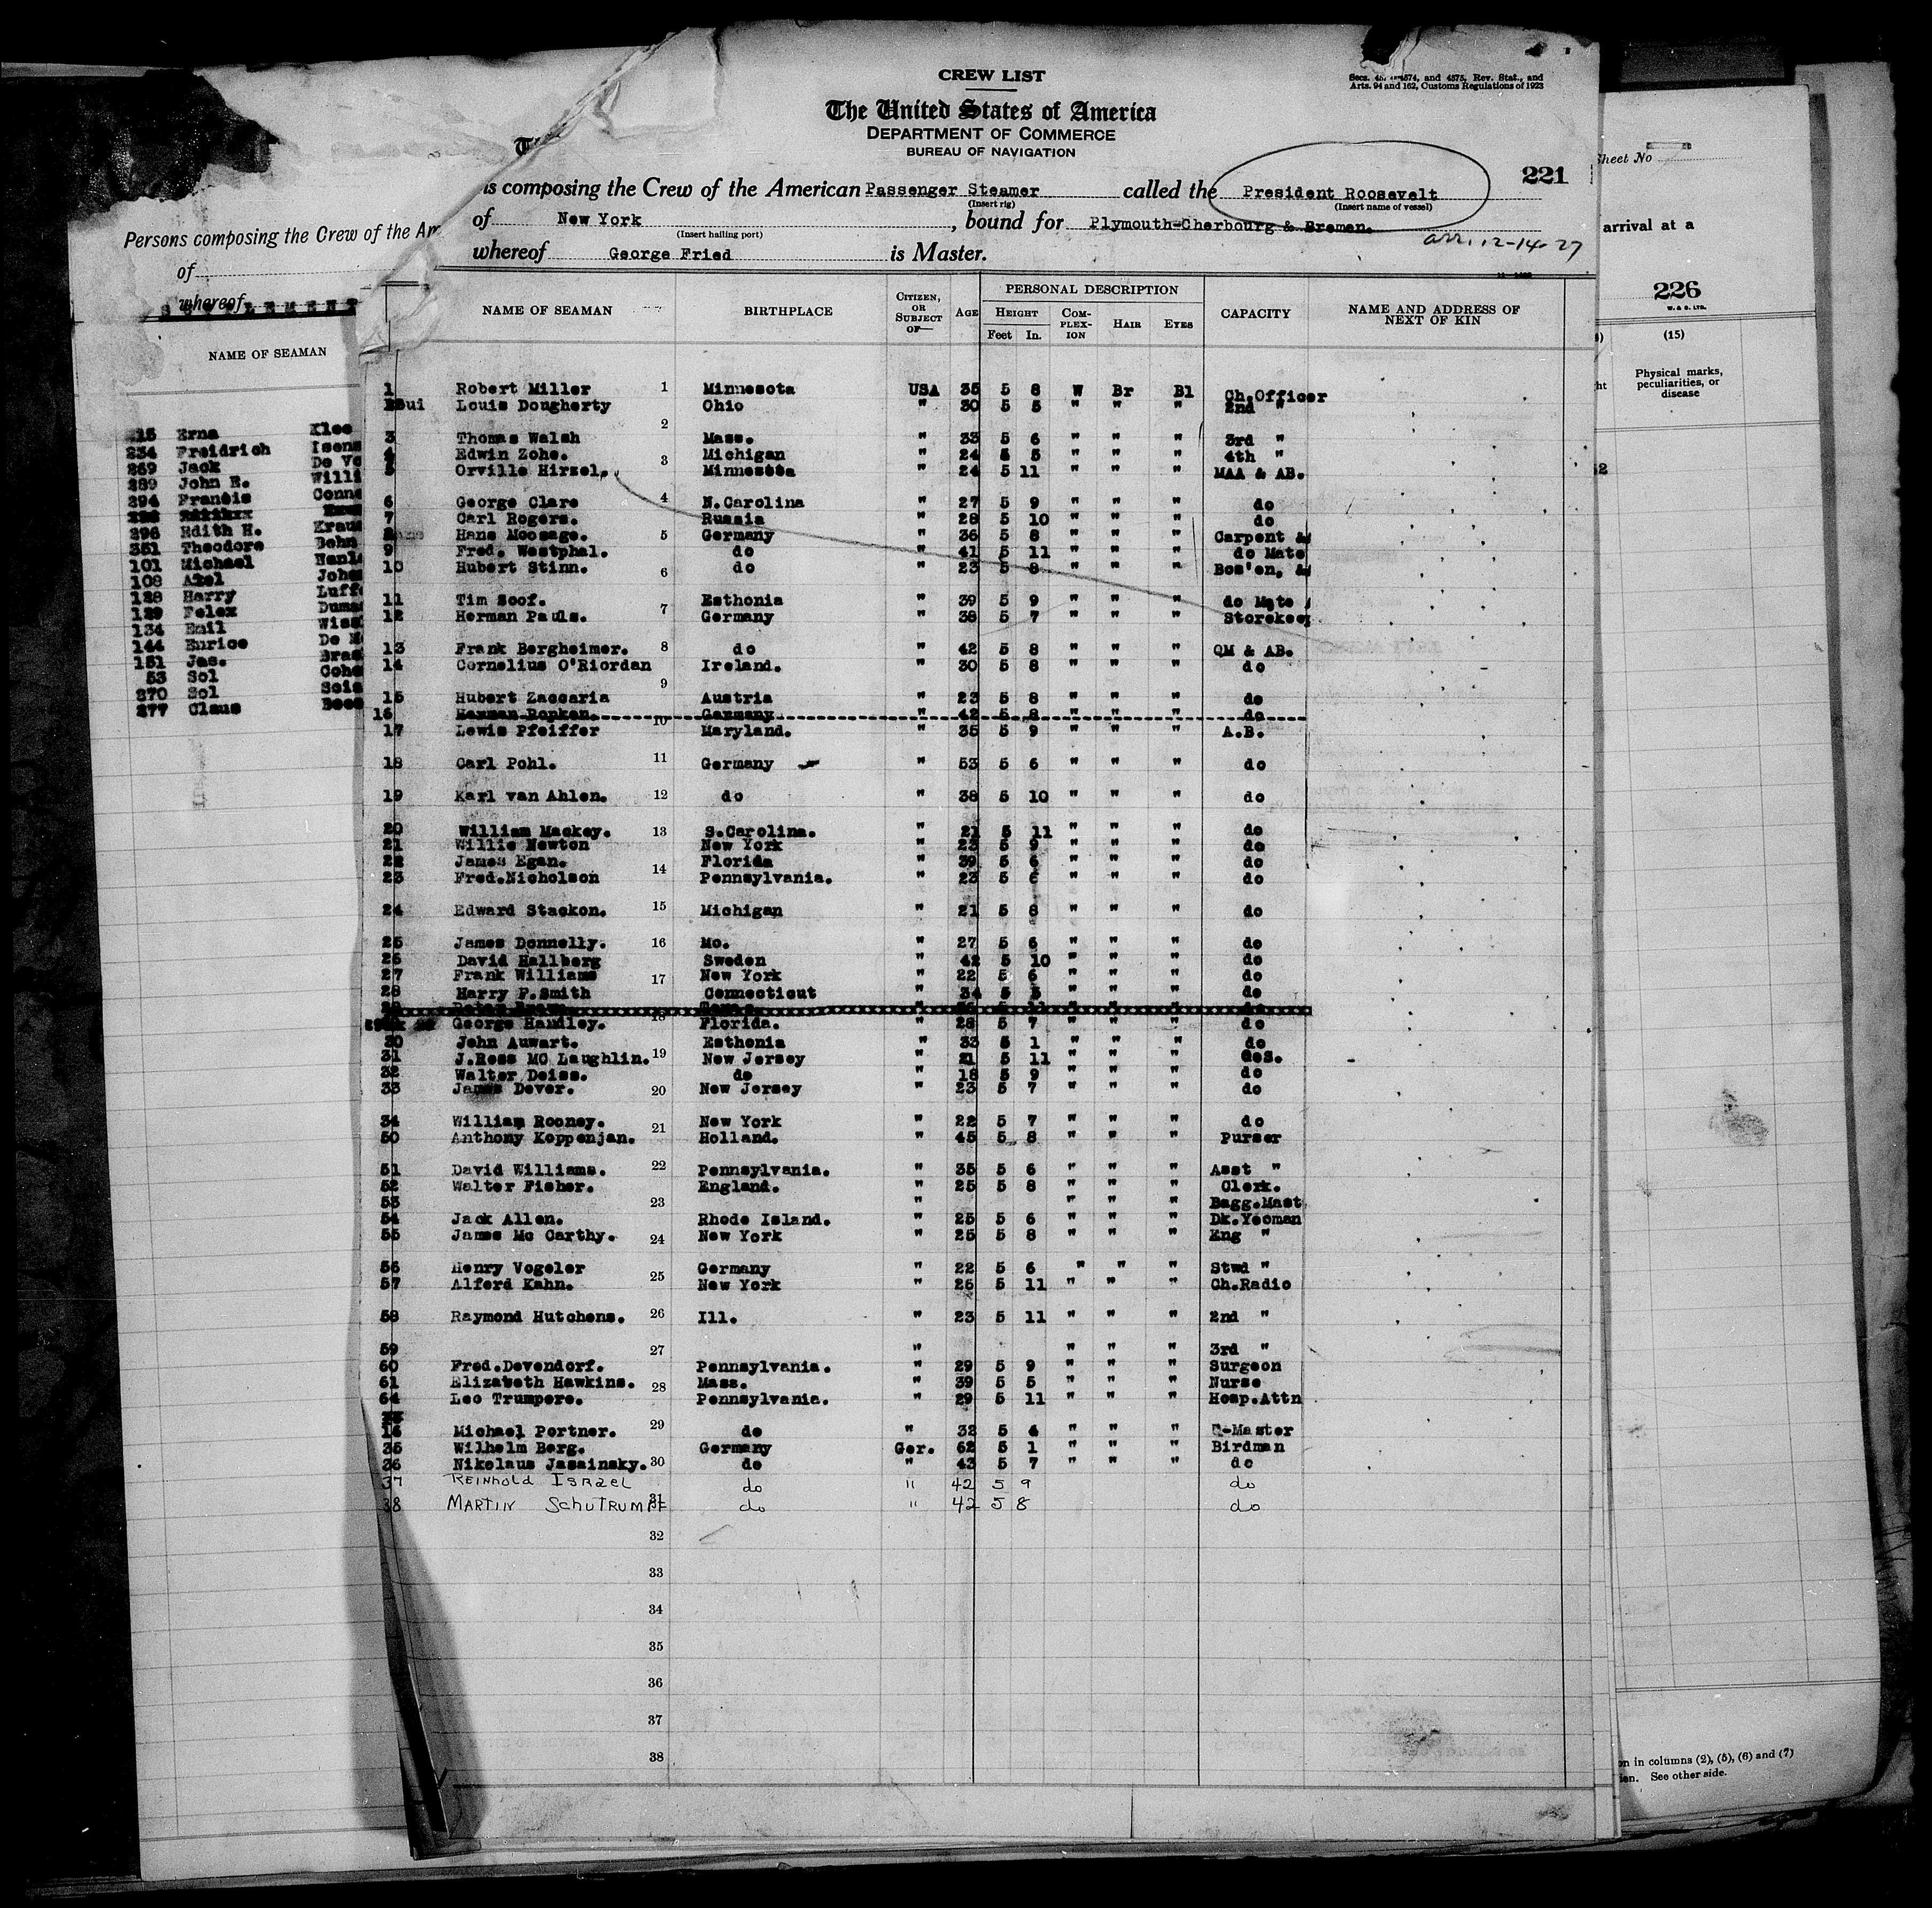 CREW LIST
Secs. 4574, and 4575, Rev. Stat., and
Arts. 94 and 162, Customs Regulations of 1923
The United States of America
DEPARTMENT OF COMMERCE
BUREAU OF NAVIGATION
221
is composing the Crew of the American Passenger Steamer called the President Roosevelt
(Insert rig) (Insert name of vessel)
of New York, bound for Plymouth-Cherbourg & Bremen.
(Insert hailing port)
arr. 12-14-27
whereof George Fried is Master.
NAME OF SEAMAN BIRTHPLACE CITIZEN, OR SUBJECT OF— AGE PERSONAL DESCRIPTION CAPACITY NAME AND ADDRESS OF NEXT OF KIN
HEIGHT COM-PLEX-ION HAIR EYES
Feet In.
1 Robert Miller 1 Minnesota USA 35 5 8 W Br Bl Ch.Officer
Louis Dougherty Ohio " 30 5 5 " " " 2nd "
2
3 Thomas Walsh Mass. " 33 5 6 " " " 3rd "
4 Edwin Zohe. Michigan " 24 5 5 " " " 4th "
5 Orville Hirzel. 3 Minnesota " 24 5 11 " " " MAA & AB.
6 George Clare 4 N.Carolina " 27 5 9 " " " do
7 Carl Rogers. Russia " 28 5 10 " " " do
8 Hans Moosage. 5 Germany " 36 5 8 " " " Carpent &
9 Fred. Westphal. do " 41 5 11 " " " do Mate
10 Hubert Stinn. 6 do " 23 5 8 " " " Bos'en, &
11 Tim Soof. Esthonia " 39 5 9 " " " do Mate
12 Herman Pauls. 7 Germany " 38 5 7 " " " Storekee
13 Frank Bergheimer. 8 do " 42 5 8 " " " QM & AB.
14 Cornelius O'Riordan Ireland. " 30 5 8 " " " do
9
15 Hubert Zaccaria Austria " 23 5 8 " " " do
16 Herman Ropken. 10 Germany " 42 5 8 " " " do
17 Lewis Pfeiffer Maryland. " 35 5 9 " " " A.B.
18 Carl Pohl. 11 Germany " 53 5 6 " " " do
19 Karl van Ahlen. 12 do " 38 5 10 " " " do
20 William Mackey. 13 S.Carolina. " 21 5 11 " " " do
21 Willie Newton New York " 23 5 9 " " " do
22 James Egan. Florida " 39 5 6 " " " do
23 Fred.Nicholson 14 Pennsylvania. " 23 5 6 " " " do
24 Edward Stackon. 15 Michigan " 21 5 8 " " " do
25 James Donnelly. 16 Mo. " 27 5 6 " " " do
26 David Hallberg Sweden " 42 5 10 " " " do
27 Frank Williams 17 New York " 22 5 6 " " " do
28 Harry P.Smith Connecticut " 34 5 5 " " " do
18
George Handley. Florida. " 28 5 7 " " " do
30 John Auwart. Esthonia " 33 5 1 " " " do
31 J.Ross MC Laughlin. 19 New Jersey " 21 5 11 " " " dos.
32 Walter Deiss. do " 18 5 9 " " " do
33 James Dever. 20 New Jersey " 23 5 7 " " " do
34 William Rooney. 21 New York " 22 5 7 " " " do
50 Anthony Koppenjan. Holland. " 45 5 8 " " " Purser
51 David Williams. 22 Pennsylvania. " 35 5 6 " " " Asst "
52 Walter Fisher. England. " 25 5 8 " " " Clerk.
53 23 " " " Bagg.Mast
54 Jack Allen. Rhode Island. " 25 5 6 " " " Dk.Yeoman
55 James Mc Carthy. 24 New York " 25 5 8 " " " Eng "
56 Henry Vogeler Germany " 22 5 6 " " " Stwd "
57 Alferd Kahn. 25 New York " 25 5 11 " " " Ch.Radio
58 Raymond Hutchens. 26 Ill. " 23 5 11 " " " 2nd "
59 27 " " " " 3rd "
60 Fred.Devendorf. Pennsylvania. " 29 5 9 " " " Surgeon
61 Elizabeth Hawkins. 28 Mass. " 39 5 5 " " " Nurse
64 Leo Trumpore. Pennsylvania. " 29 5 11 " " " Hosp.Attn
Michael Portner. 29 do " 32 5 4 " " " -Master
35 Wilhelm Berg. Germany Ger. 62 5 1 " " " Birdman
36 Nikolaus Jasainsky. 30 do " 43 5 7 " " " do
37 REINHOLD ISRAEL do " 42 5 9 do
38 MARTIN SCHUTRUMPF 31 do " 42 5 8 do
32
33
34
35
36
37
38
Persons composing the Crew of the Am
of
whereof
NAME OF SEAMAN
Erna Klee
234 Freidrich Isens
269 Jack De Vo
289 John E. Willi
294 Francis Conne
296 Edith H. Kraus
351 Theodore Bohn
101 Michael
108 Axel Johan
128 Harry Luff
129 Felex Dumas
134 Emil Wiss
144 Enrico De M
151 Jas. Bras
53 Sol Cohe
270 Sol Scia
277 Claus
Sheet No
arrival at a
226
(15)
Physical marks, peculiarities, or disease
on in columns (2), (5), (6) and (7)
See other side.